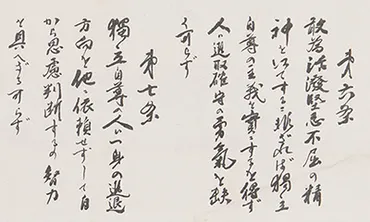 第六条
敢為活潑堅忍不屈の精
神を以てするに非ざれば獨立
自尊の主義を實にするを得ず
人は進取確守の勇氣を缺
く可らず
第七条
獨立自尊の人は一身の進退
方向を他に依賴せずして自
から思慮判斷するの智力
を具へざる可らず